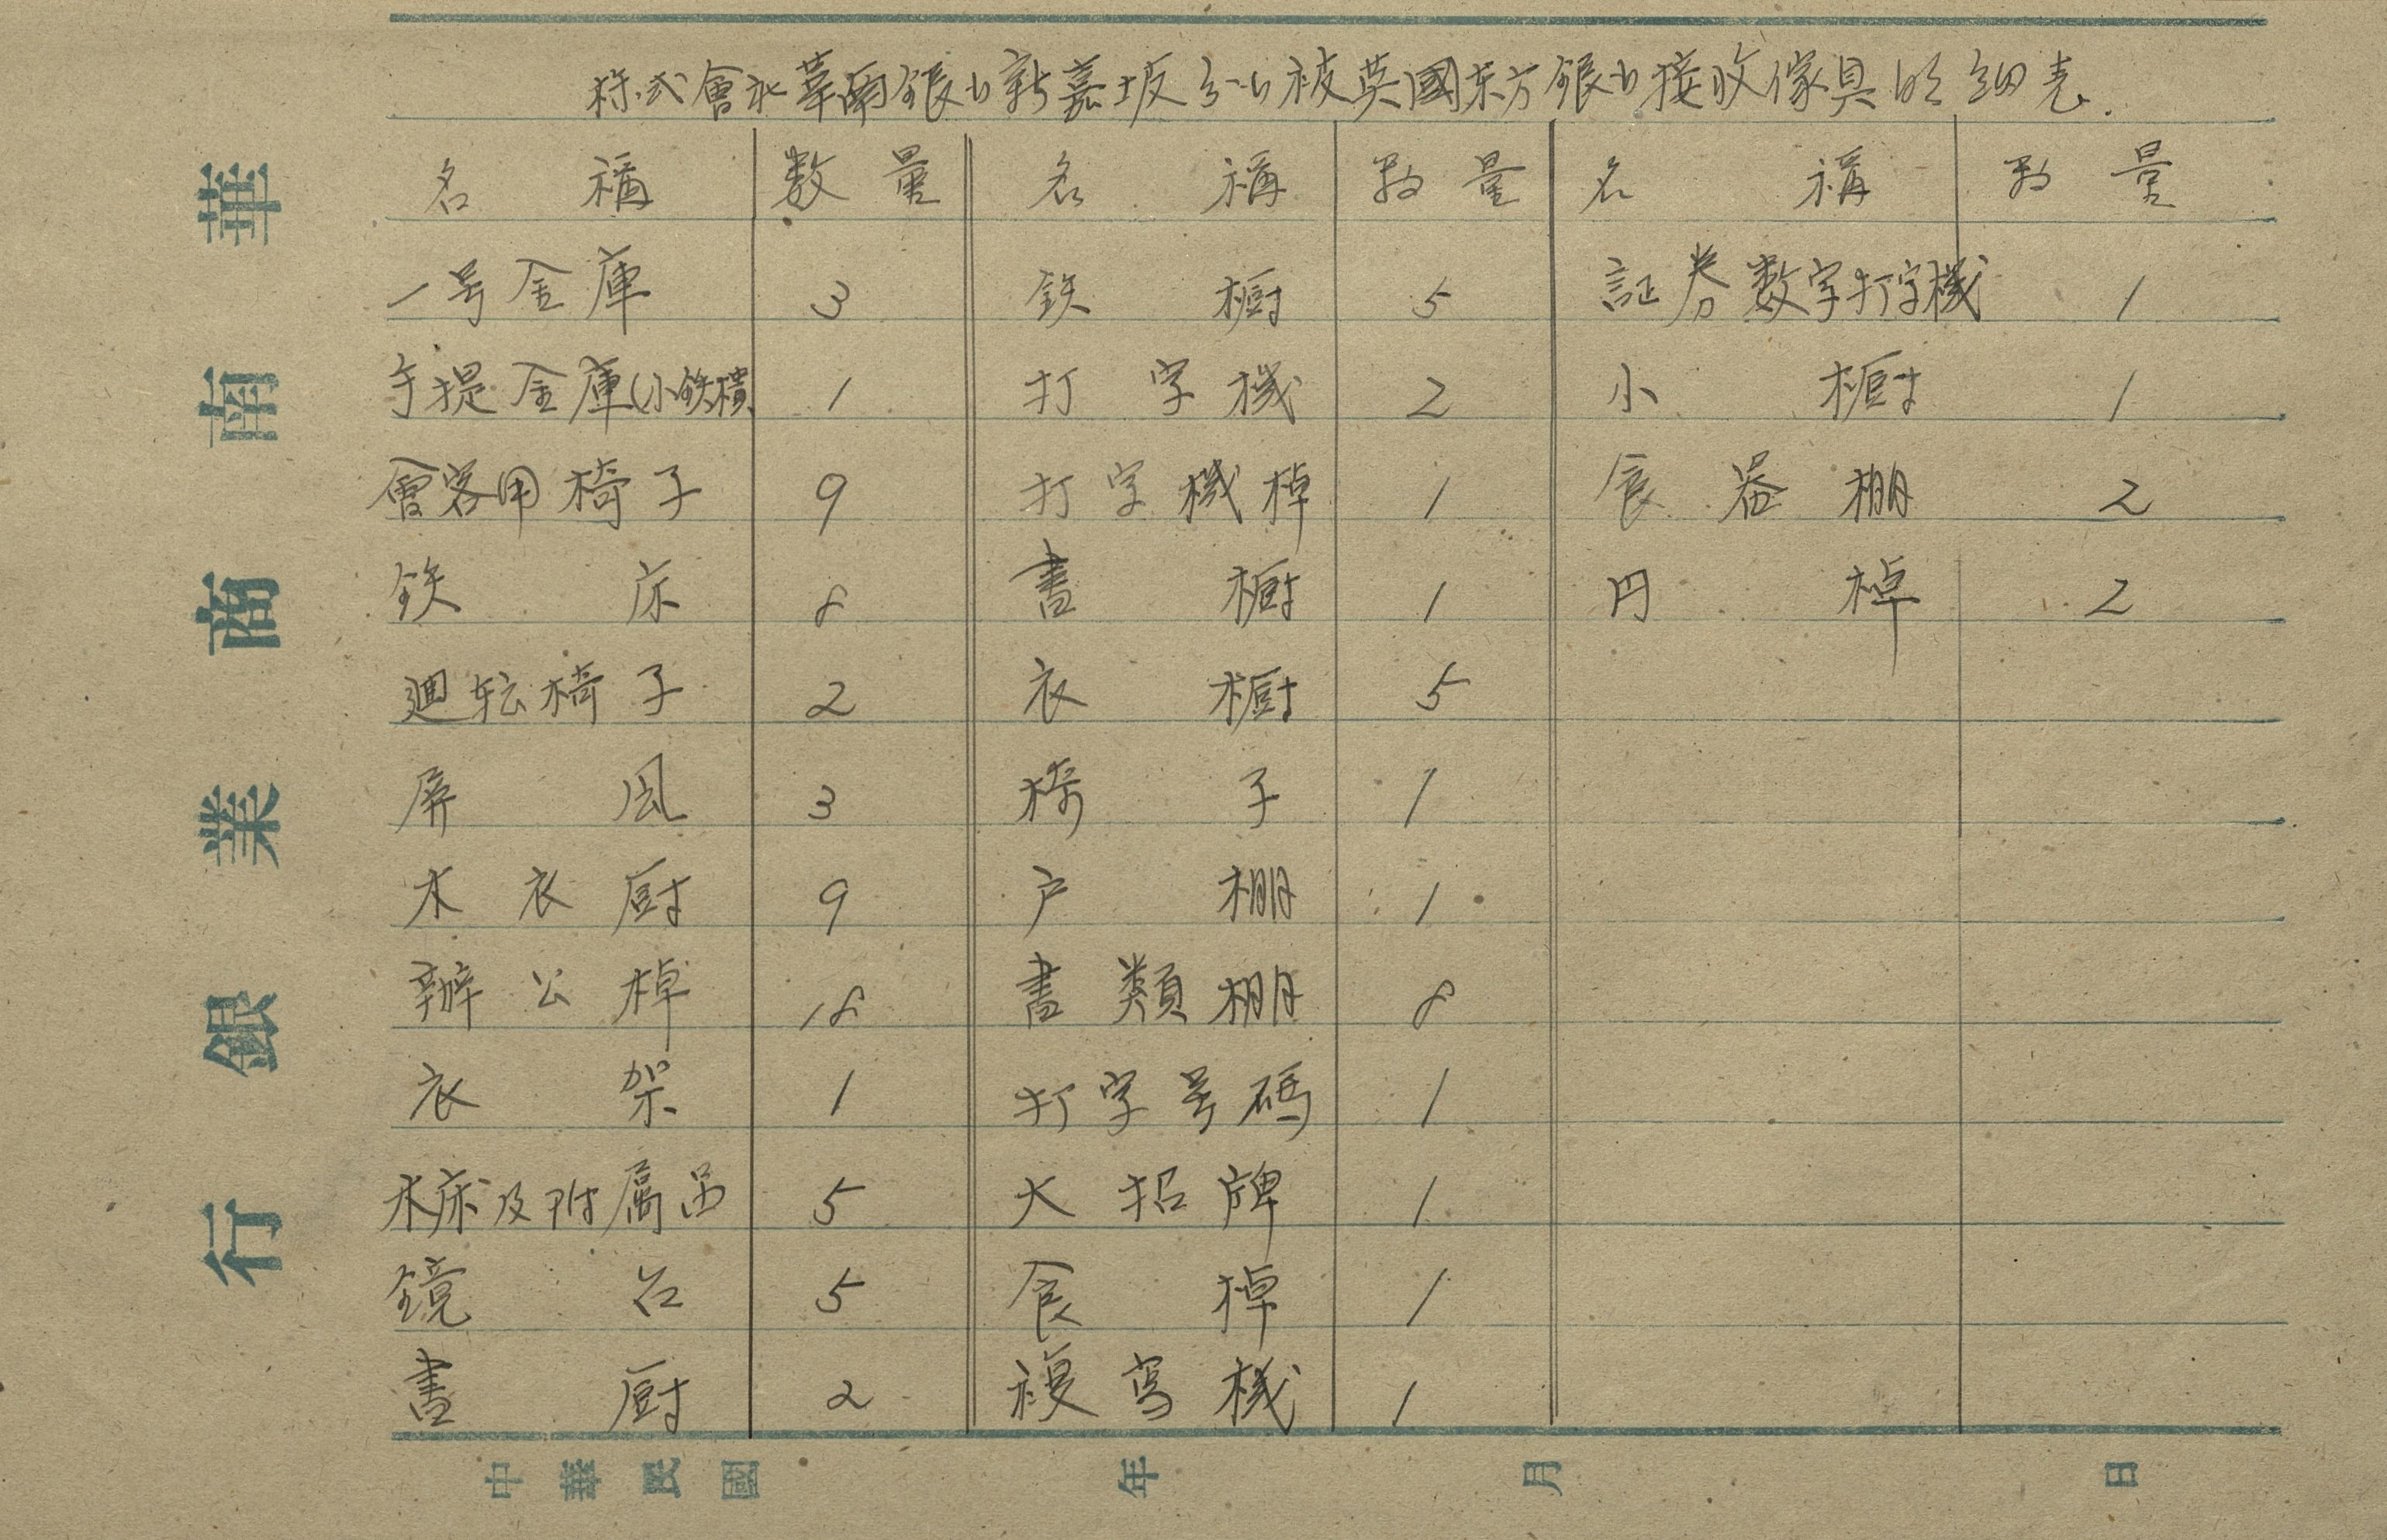 株式會社華南銀行新嘉坡分行被英國东方銀行接收傢具明細表.
名稱 数量 名稱 数量 名稱 数量
一号金庫 3 鉄櫥 5 証券数字打字機 1
手提金庫(小鉄櫃) 1 打字機 2 小櫥 1
會客用椅子 9 打字機棹 1 食器棚 2
鉄床 8 書櫥 1 円棹 2
廻転椅子 2 衣櫥 5
屏風 3 椅子 1
木衣厨 9 户棚 1
辦公棹 18 書類棚 8
衣架 1 打字号碼 1
木床及附属品 5 大招牌 1
鏡台 5 食棹 1
書厨 2 複写機 1
華南商業銀行
中華民國 年 月 日